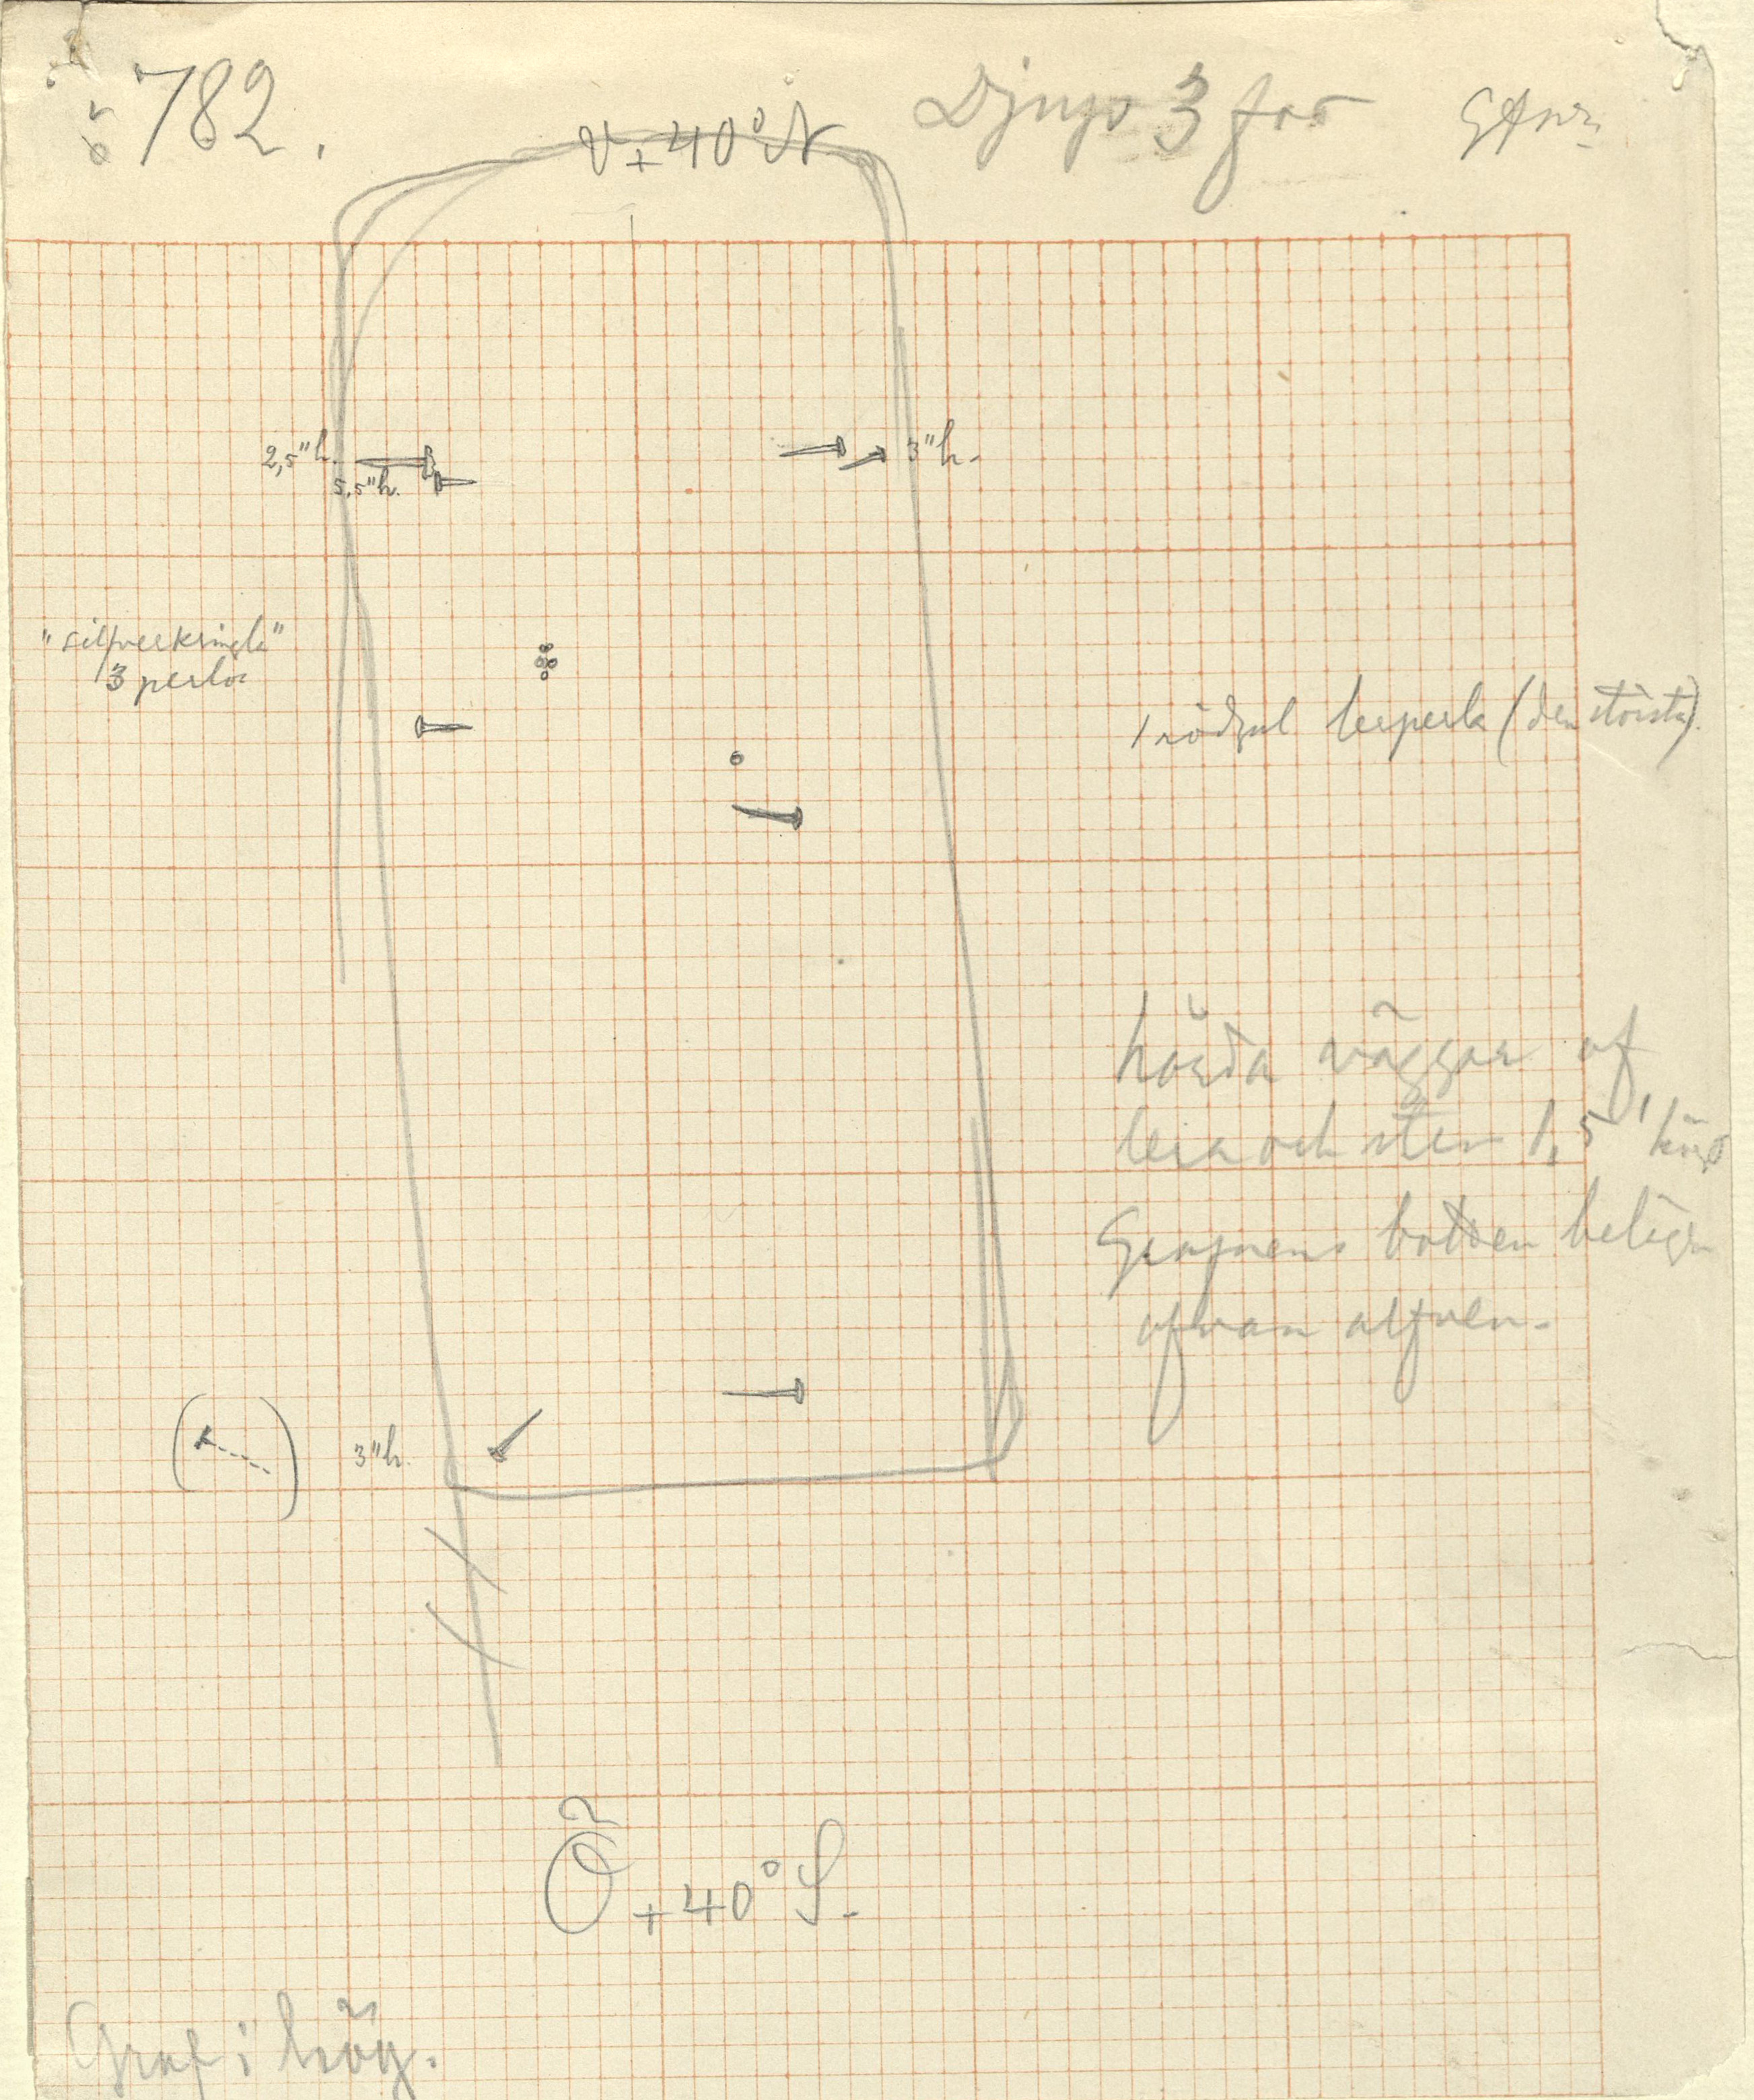 782.
V+40°N
Djup 3 fot
2,5"h.
5,5"h.
3"h.
"silfverkringla"
3 perlor
1 rödgul lerperla (den största).
hårda väggar af
lera och sten 1,5'
Grafvens botten belägen
ofvan alfven.
3"h.
Ö+40°S.
Graf i hög.